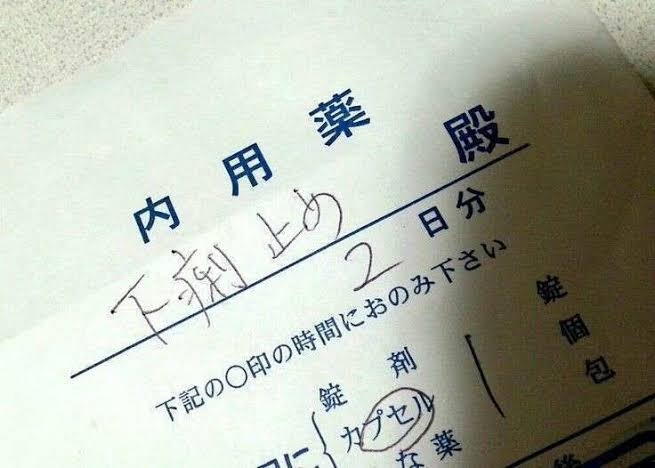 内用薬
下痢止め 殿
2日分
下記の○印の時間におのみ下さい
錠剤 錠
カプセル 1 個
な薬 包
に